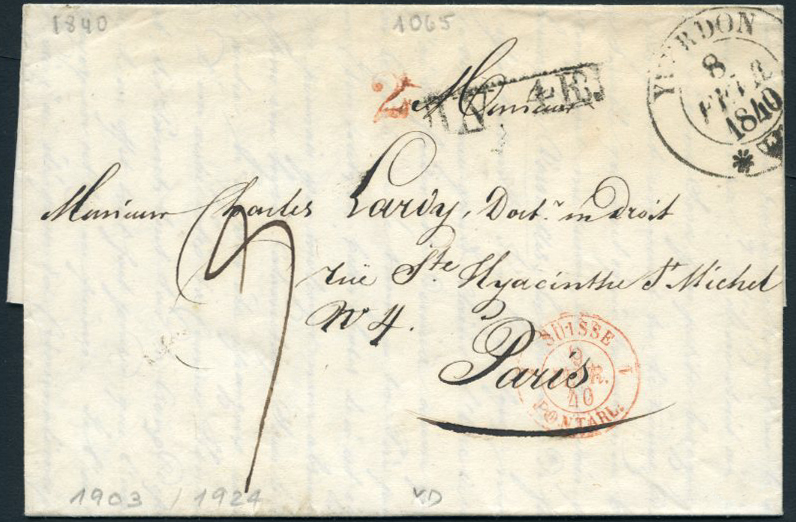 1840 1065
YVERDON
8
FEVR
1840
2
4.R.
Monsieur
Monsieur Charles Lardy, Doct.r in droit
rüe Ste Hyacinthe St Michel
No 4.
Paris
SUISSE 1
40
PONTARL.
1903 / 1924 VD